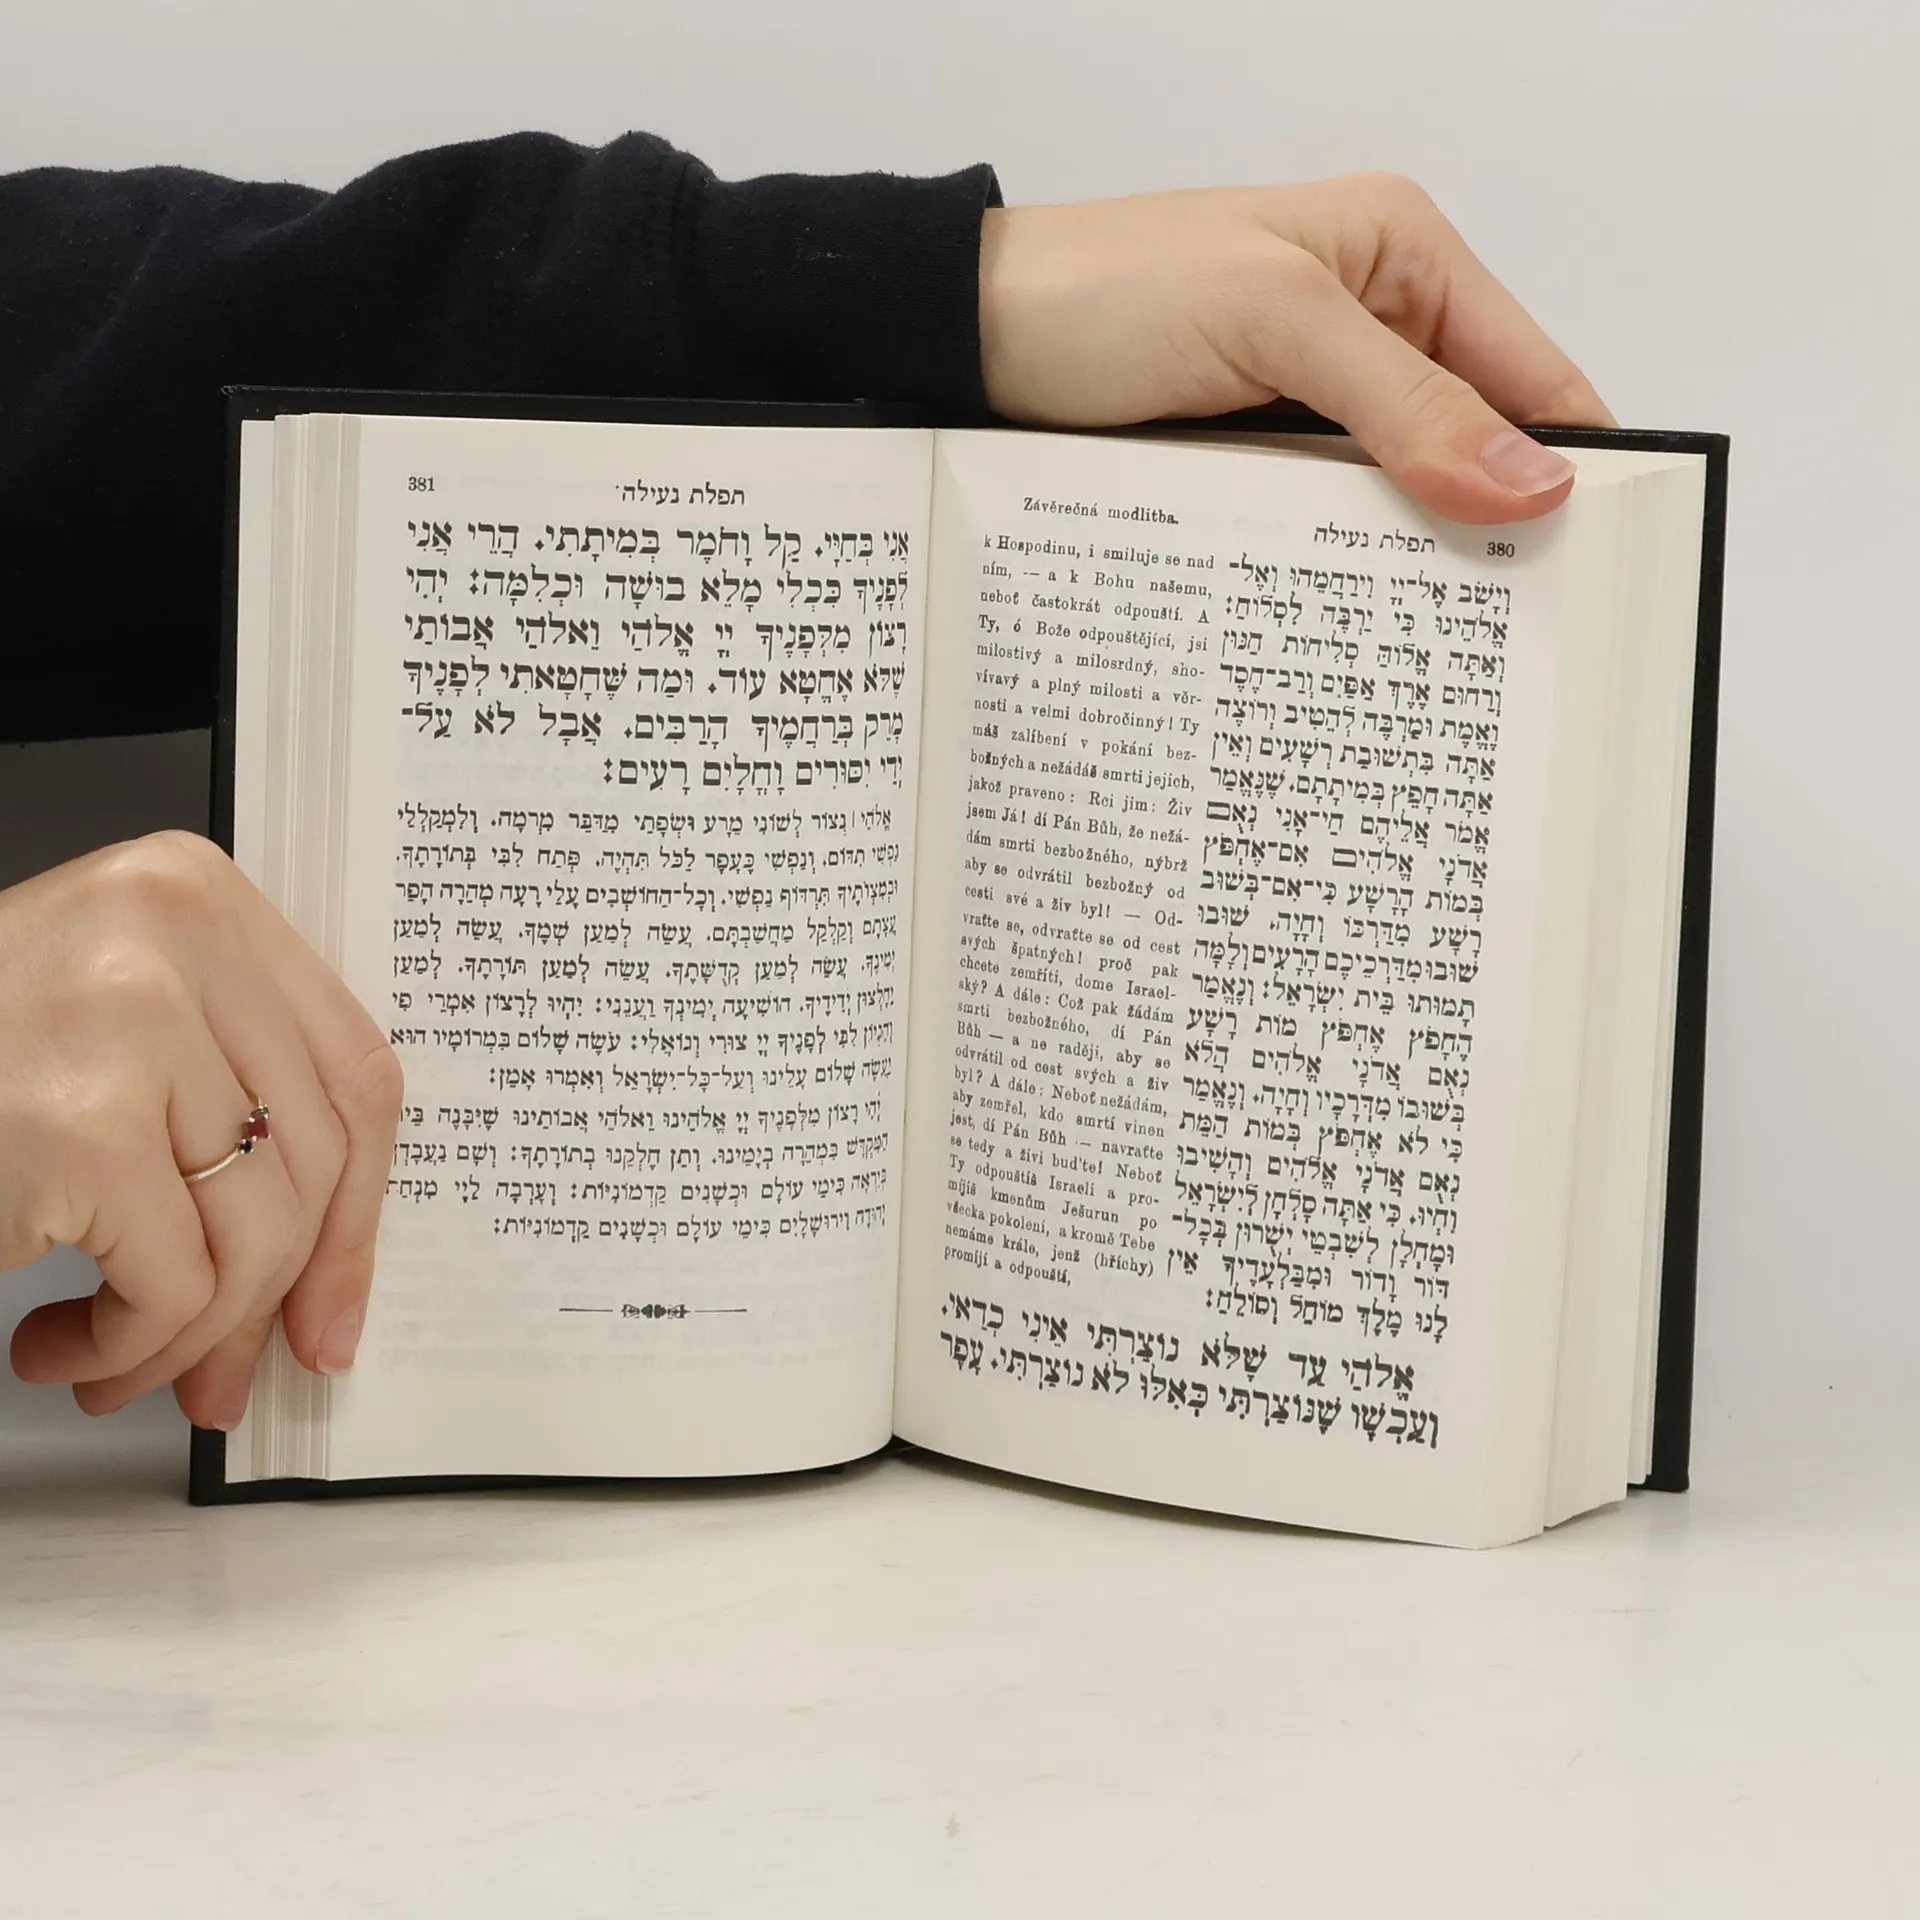 תפלת נעילה 380
וְיָשֹׁב אֶל־יְיָ וִירַחֲמֵהוּ וְאֶל־
אֱלֹהֵינוּ כִּי יַרְבֶּה לִסְלוֹחַ:
וְאַתָּה אֱלוֹהַּ סְלִיחוֹת חַנּוּן
וְרַחוּם אֶרֶךְ אַפַּיִם וְרַב־חֶסֶד
וֶאֱמֶת וּמַרְבֶּה לְהֵטִיב וְרוֹצֶה
אַתָּה בִּתְשׁוּבַת רְשָׁעִים וְאֵין
אַתָּה חָפֵץ בְּמִיתָתָם. שֶׁנֶּאֱמַר
אֱמֹר אֲלֵיהֶם חַי־אָנִי נְאֻם
אֲדֹנָי אֱלֹהִים אִם־אֶחְפֹּץ
בְּמוֹת הָרָשָׁע כִּי־אִם־בְּשׁוּב
רָשָׁע מִדַּרְכּוֹ וְחָיָה. שׁוּבוּ
שׁוּבוּ מִדַּרְכֵיכֶם הָרָעִים וְלָמָּה
תָמוּתוּ בֵּית יִשְׂרָאֵל: וְנֶאֱמַר
הֶחָפֹץ אֶחְפֹּץ מוֹת רָשָׁע
נְאֻם אֲדֹנָי אֱלֹהִים הֲלֹא
בְּשׁוּבוֹ מִדְּרָכָיו וְחָיָה. וְנֶאֱמַר
כִּי לֹא אֶחְפֹּץ בְּמוֹת הַמֵּת
נְאֻם אֲדֹנָי אֱלֹהִים וְהָשִׁיבוּ
וִחְיוּ. כִּי אַתָּה סָלְחָן לְיִשְׂרָאֵל
וּמָחֳלָן לְשִׁבְטֵי יְשֻׁרוּן בְּכָל־
דּוֹר וָדוֹר וּמִבַּלְעָדֶיךָ אֵין
לָנוּ מֶלֶךְ מוֹחֵל וְסוֹלֵחַ:
Závěrečná modlitba.
k Hospodinu, i smiluje se nad
ním, — a k Bohu našemu,
neboť častokrát odpouští. A
Ty, ó Bože odpouštějící, jsi
milostivý a milosrdný, sho-
vívavý a plný milosti a věr-
nosti a velmi dobročinný! Ty
máš zalíbení v pokání bez-
božných a nežádáš smrti jejich,
jakož praveno: Rci jim: Živ
jsem Já! dí Pán Bůh, že nežá-
dám smrti bezbožného, nýbrž
aby se odvrátil bezbožný od
cesti své a živ byl! — Od-
vraťte se, odvraťte se od cest
svých špatných! proč pak
chcete zemříti, dome Israel-
ský? A dále: Což pak žádám
smrti bezbožného, dí Pán
Bůh — a ne raději, aby se
odvrátil od cest svých a živ
byl? A dále: Neboť nežádám,
aby zemřel, kdo smrtí vinen
jest, dí Pán Bůh — navraťte
se tedy a živi buďte! Neboť
Ty odpouštíš Israeli a pro-
míjíš kmenům Ješurun po
všecka pokolení, a kromě Tebe
nemáme krále, jenž (hříchy)
promíjí a odpouští,
אֱלֹהַי עַד שֶׁלֹּא נוֹצַרְתִּי אֵינִי כְדַאי.
וְעַכְשָׁו שֶׁנּוֹצַרְתִּי כְּאִלּוּ לֹא נוֹצַרְתִּי. עָפָר
תפלת נעילה 381
אֲנִי בְּחַיָּי. קַל וָחֹמֶר בְּמִיתָתִי. הֲרֵי אֲנִי
לְפָנֶיךָ כִּכְלִי מָלֵא בוּשָׁה וּכְלִמָּה: יְהִי
רָצוֹן מִלְּפָנֶיךָ יְיָ אֱלֹהַי וֵאלֹהֵי אֲבוֹתַי
שֶׁלֹּא אֶחֱטָא עוֹד. וּמַה שֶּׁחָטָאתִי לְפָנֶיךָ
מָרֵק בְּרַחֲמֶיךָ הָרַבִּים. אֲבָל לֹא עַל־
יְדֵי יִסּוּרִים וָחֳלָיִם רָעִים:
אֱלֹהַי | נְצוֹר לְשׁוֹנִי מֵרָע וּשְׂפָתַי מִדַּבֵּר מִרְמָה. וְלִמְקַלְלַי
נַפְשִׁי תִדּוֹם. וְנַפְשִׁי כֶּעָפָר לַכֹּל תִּהְיֶה. פְּתַח לִבִּי בְּתוֹרָתֶךָ.
וּבְמִצְוֹתֶיךָ תִּרְדּוֹף נַפְשִׁי. וְכָל־הַחוֹשְׁבִים עָלַי רָעָה מְהֵרָה הָפֵר
עֲצָתָם וְקַלְקֵל מַחֲשַׁבְתָּם. עֲשֵׂה לְמַעַן שְׁמֶךָ. עֲשֵׂה לְמַעַן
יְמִינֶךָ. עֲשֵׂה לְמַעַן קְדֻשָּׁתֶךָ. עֲשֵׂה לְמַעַן תּוֹרָתֶךָ. לְמַעַן
יֵחָלְצוּן יְדִידֶיךָ. הוֹשִׁיעָה יְמִינְךָ וַעֲנֵנִי: יִהְיוּ לְרָצוֹן אִמְרֵי פִי
וְהֶגְיוֹן לִבִּי לְפָנֶיךָ יְיָ צוּרִי וְגוֹאֲלִי: עֹשֶׂה שָׁלוֹם בִּמְרוֹמָיו הוּא
יַעֲשֶׂה שָׁלוֹם עָלֵינוּ וְעַל־כָּל־יִשְׂרָאֵל וְאִמְרוּ אָמֵן:
יְהִי רָצוֹן מִלְּפָנֶיךָ יְיָ אֱלֹהֵינוּ וֵאלֹהֵי אֲבוֹתֵינוּ שֶׁיִּבָּנֶה בֵּית
הַמִּקְדָּשׁ בִּמְהֵרָה בְיָמֵינוּ. וְתֵן חֶלְקֵנוּ בְתוֹרָתֶךָ: וְשָׁם נַעֲבָדְךָ
בְּיִרְאָה כִּימֵי עוֹלָם וּכְשָׁנִים קַדְמוֹנִיּוֹת: וְעָרְבָה לַיְיָ מִנְחַת
יְהוּדָה וִירוּשָׁלָיִם כִּימֵי עוֹלָם וּכְשָׁנִים קַדְמוֹנִיּוֹת: